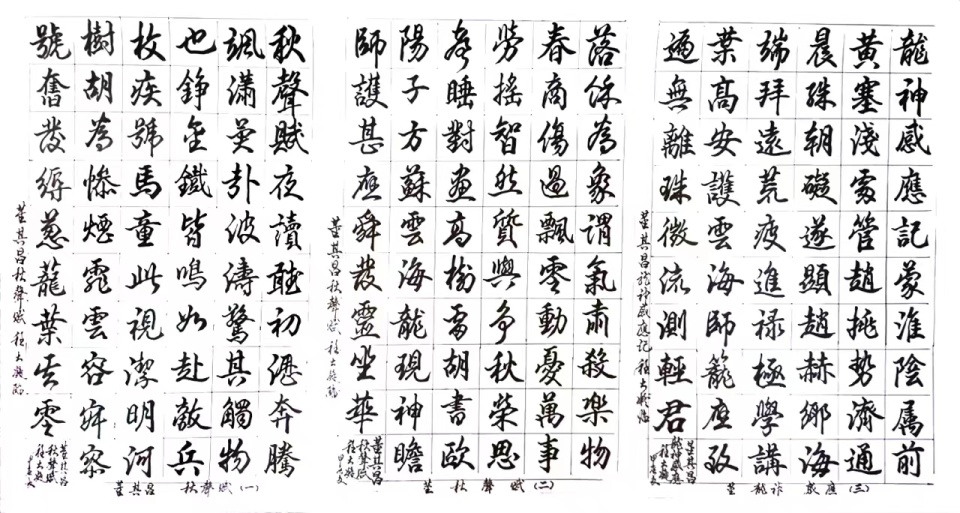 秋聲賦夜讀聽初奔騰
颯瀟波濤驚其觸物
也錚金鐵皆鳴如赴敵兵
枚疾號馬童此視潔明河
樹胡為慘煙霏雲容察
號奮發縟蔥蘢葉零
董其昌秋聲賦
董其昌秋聲賦
董其昌 秋聲賦(一)
落余為象謂氣肅殺樂物
春商傷過飄零動憂萬事
勞搖智然質與爭秋榮思
睡對高樹雷胡書歐
陽子方蘇雲海龍現神瞻
師護甚應舜發靈坐華
董其昌秋聲賦
董其昌秋聲賦
董 秋聲賦(二)
龍神感應記蒙淮陰属前
黃塞淺處管趙挑勢濟通
晨殊朝礙遂顯趙赫鄉海
端拜遠荒疲進祿極學講
葉高安護雲海師籠應致
遍無離珠微流測輕君
董其昌龍神感應記
董其昌龍神感應
董 龍神 感應(三)